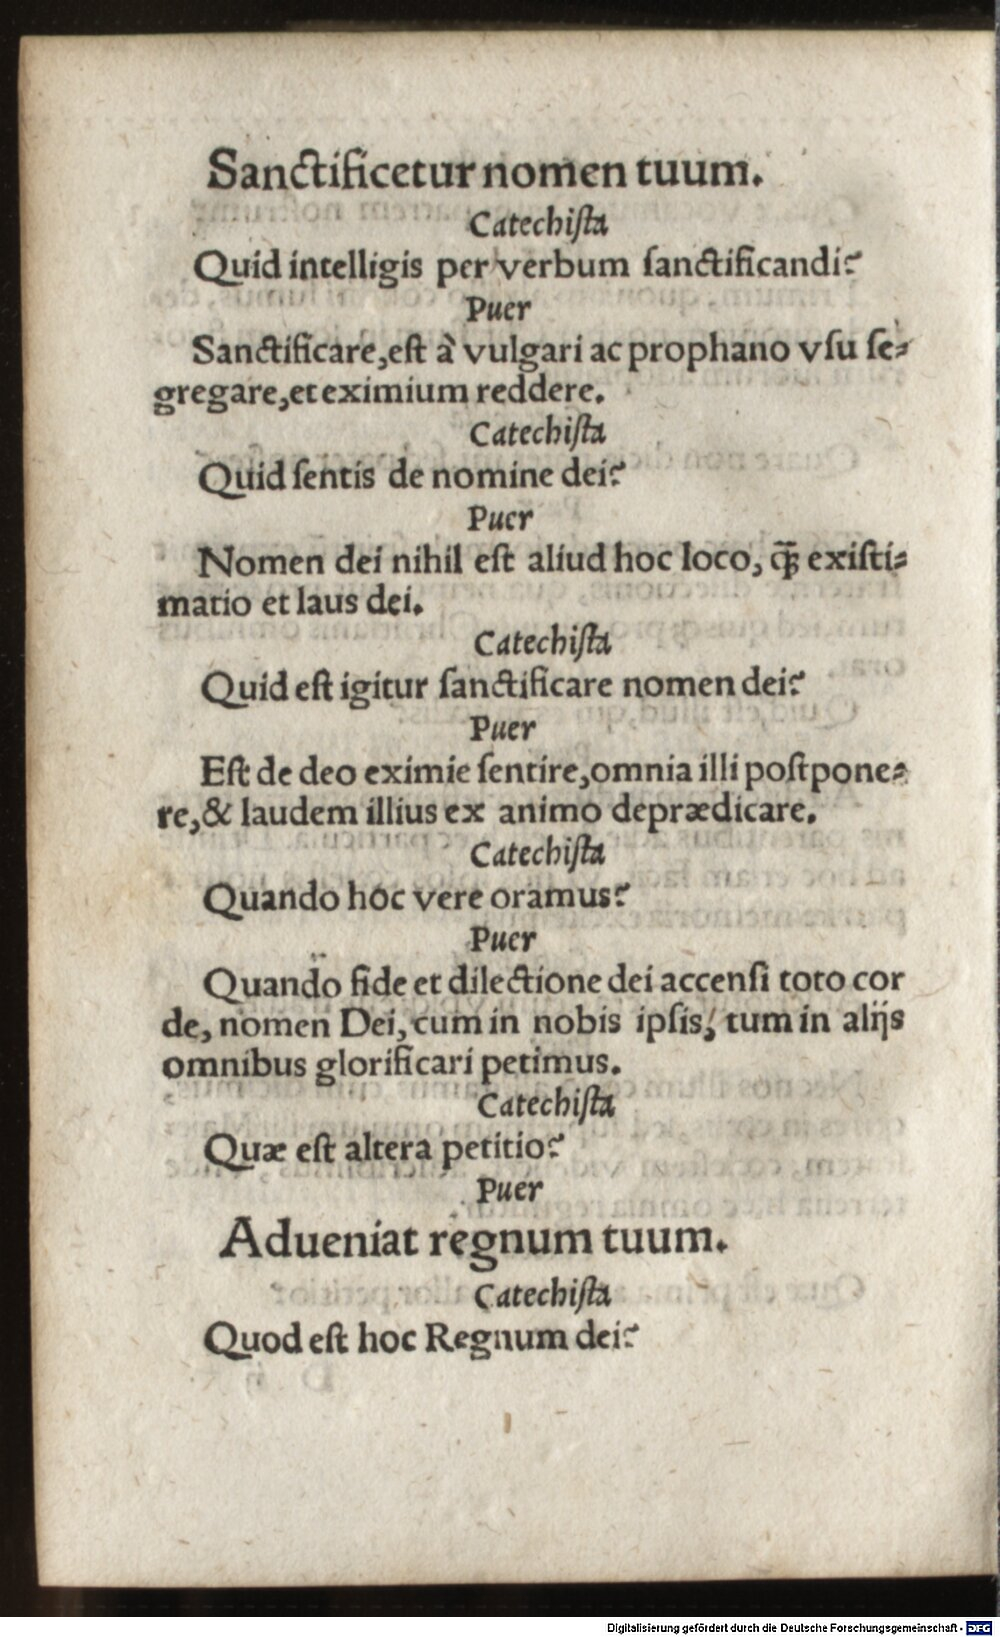 Sanctificetur nomen tuum.
Catechiſta
Quid intelligis per verbum ſanctificandi?
Puer
Sanctificare, eſt à vulgari ac prophano vſu ſe⸗
gregare, et eximium reddere.
Catechiſta
Quid ſentis de nomine dei?
Puer
Nomen dei nihil eſt aliud hoc loco, q̃ꝫ exiſti⸗
matio et laus dei.
Catechiſta
Quid eſt igitur ſanctificare nomen dei?
Puer
Eſt de deo eximie ſentire, omnia illi poſtpone⸗
re, & laudem illius ex animo deprædicare.
Catechiſta
Quando hoc vere oramus?
Puer
Quando fide et dilectione dei accenſi toto cor
de, nomen Dei, cum in nobis ipſis, tum in alijs
omnibus glorificari petimus.
Catechiſta
Quæ eſt altera petitio?
Puer
Adueniat regnum tuum.
Catechiſta
Quod eſt hoc Regnum dei?
Digitalisierung gefördert durch die Deutsche Forschungsgemeinschaft - DFG